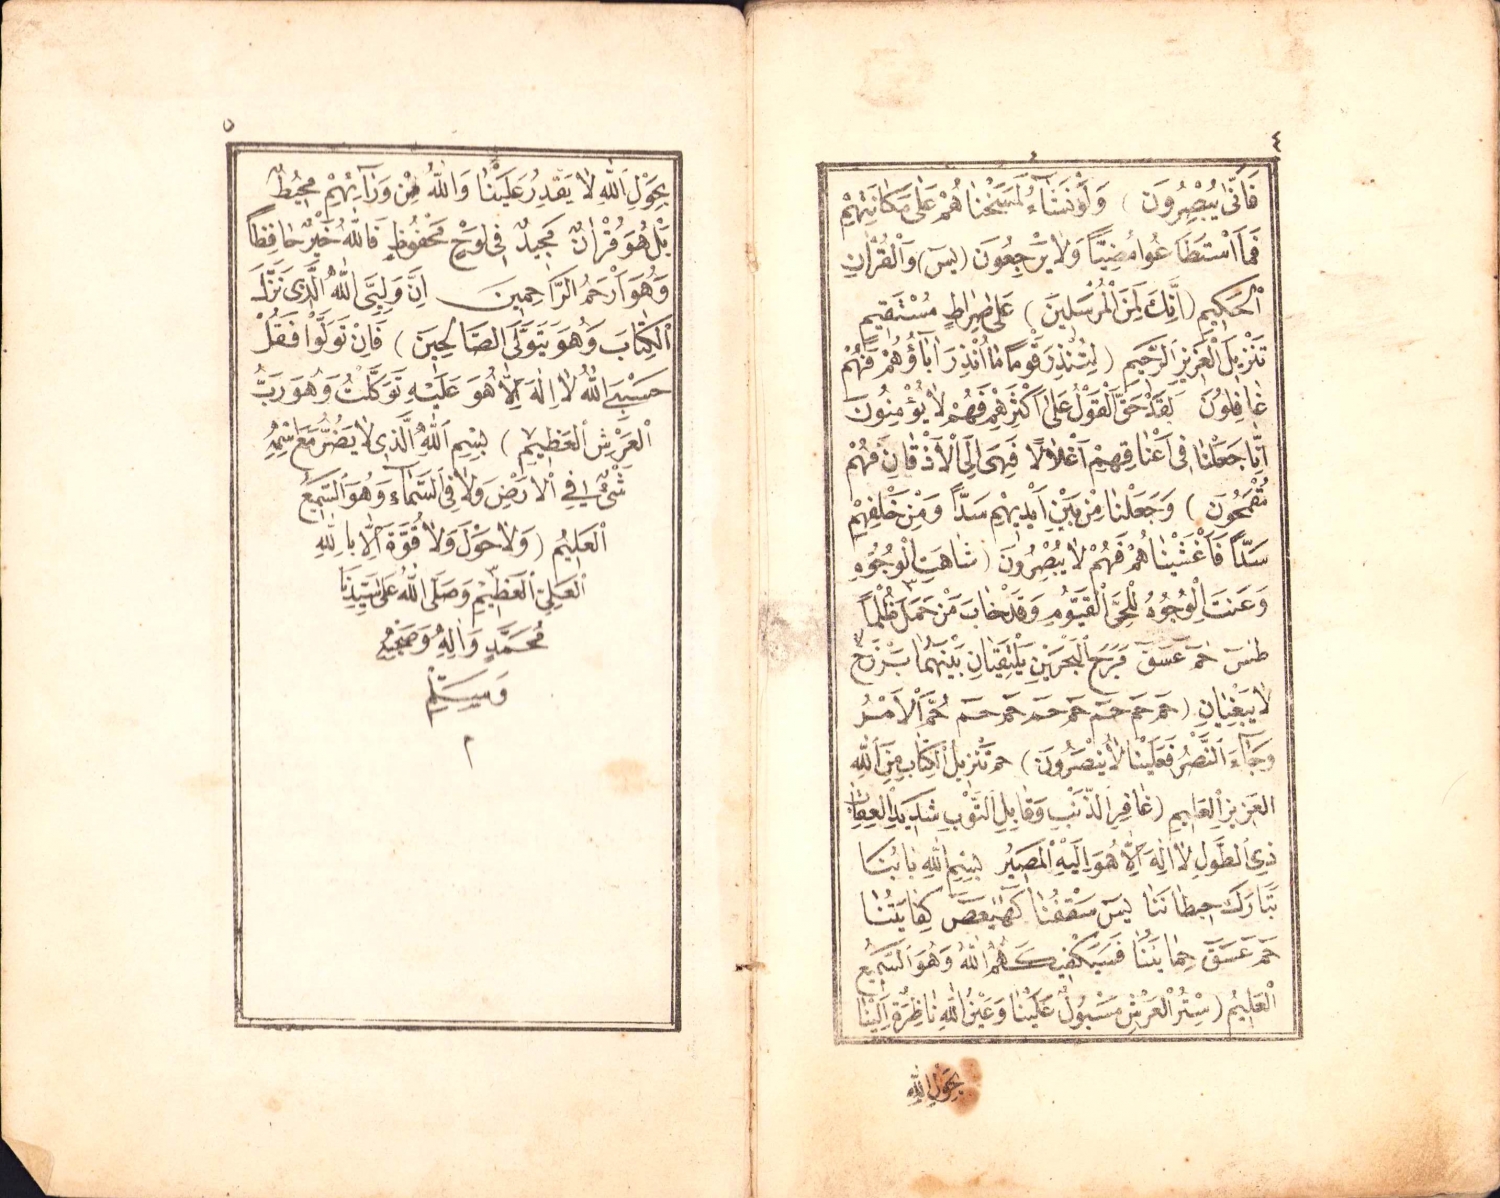 ٤
فَاَنّٰى يُبْصِرُونَ ) وَلَوْنَشَاۤءُ لَمَسَخْنَاهُمْ عَلٰى مَكَانَتِهِمْ
فَمَا اسْتَطَاعُوا مُضِيًّا وَلَا يَرْجِعُونَ (يٰسۤ) وَالْقُرْاٰنِ
الْحَكِيمِ (اِنَّكَ لَمِنَ الْمُرْسَلِينَ ) عَلٰى صِرَاطٍ مُسْتَقِيمٍ
تَنْزِيلَ الْعَزِيزِ الرَّحِيمِ ( لِتُنْذِرَ قَوْمًا مَا اُنْذِرَ اٰبَاۤؤُهُمْ فَهُمْ
غَافِلُونَ لَقَدْ حَقَّ الْقَوْلُ عَلٰى اَكْثَرِهِمْ فَهُمْ لَا يُؤْمِنُونَ
اِنَّا جَعَلْنَا فِى اَعْنَاقِهِمْ اَغْلَالًا فَهِىَ اِلَى الْاَذْقَانِ فَهُمْ
مُقْمَحُونَ ) وَجَعَلْنَا مِنْ بَيْنِ اَيْدِيهِمْ سَدًّا وَمِنْ خَلْفِهِمْ
سَدًّا فَاَغْشَيْنَاهُمْ فَهُمْ لَا يُبْصِرُونَ ( شَاهَتِ الْوُجُوهِ
وَعَنَتِ الْوُجُوهُ لِلْحَىِّ الْقَيُّومِ وَقَدْ خَابَ مَنْ حَمَلَ ظُلْمًا
طٰسۤ حٰمۤ عۤسۤقۤ مَرَجَ الْبَحْرَيْنِ يَلْتَقِيَانِ بَيْنَهُمَا بَرْزَخٌ
لَا يَبْغِيَانِ ( حٰمۤ حٰمۤ حٰمۤ حٰمۤ حٰمۤ حٰمۤ حٰمۤ حُمَّ الْاَمْرُ
وَجَاۤءَ النَّصْرُ فَعَلَيْنَا لَا يُنْصَرُونَ ) حٰمۤ تَنْزِيلُ الْكِتَابِ مِنَ اللّٰهِ
الْعَزِيزِ الْعَلِيمِ ( غَافِرِ الذَّنْبِ وَقَابِلِ التَّوْبِ شَدِيدِ الْعِقَابِ
ذِى الطَّوْلِ لَا اِلٰهَ اِلَّا هُوَ اِلَيْهِ الْمَصِيرُ بِسْمِ اللّٰهِ بَابُنَا
تَبَارَكَ حِيطَانُنَا يٰسۤ سَقْفُنَا كۤهٰيٰعۤصۤ كِفَايَتُنَا
حٰمۤ عۤسۤقۤ حِمَايَتُنَا فَسَيَكْفِيكَهُمُ اللّٰهُ وَهُوَ السَّمِيعُ
الْعَلِيمُ ( سِتْرُ الْعَرْشِ مَسْبُولٌ عَلَيْنَا وَعَيْنُ اللّٰهِ نَاظِرَةٌ اِلَيْنَا
بِحَوْلِ اللّٰهِ
٥
بِحَوْلِ اللّٰهِ لَا يَقْدِرُ عَلَيْنَا وَاللّٰهُ مِنْ وَرَاۤئِهِمْ مُحِيطٌ
بَلْ هُوَ قُرْاٰنٌ مَجِيدٌ فِى لَوْحٍ مَحْفُوظٍ فَاللّٰهُ خَيْرٌ حَافِظًا
وَهُوَ اَرْحَمُ الرَّاحِمِينَ اِنَّ وَلِيِّىَ اللّٰهُ الَّذِى نَزَّلَ
الْكِتَابَ وَهُوَ يَتَوَلَّى الصَّالِحِينَ ) فَاِنْ تَوَلَّوْا فَقُلْ
حَسْبِىَ اللّٰهُ لَا اِلٰهَ اِلَّا هُوَ عَلَيْهِ تَوَكَّلْتُ وَهُوَ رَبُّ
الْعَرْشِ الْعَظِيمِ ) بِسْمِ اللّٰهِ الَّذِى لَا يَضُرُّ مَعَ اسْمِهِ
شَىْءٌ فِى الْاَرْضِ وَلَا فِى السَّمَاۤءِ وَهُوَ السَّمِيعُ
الْعَلِيمُ ( وَلَا حَوْلَ وَلَا قُوَّةَ اِلَّا بِاللّٰهِ
الْعَلِىِّ الْعَظِيمِ وَصَلَّى اللّٰهُ عَلٰى سَيِّدِنَا
مُحَمَّدٍ وَاٰلِهِ وَصَحْبِهِ
وَسَلَّمَ
م